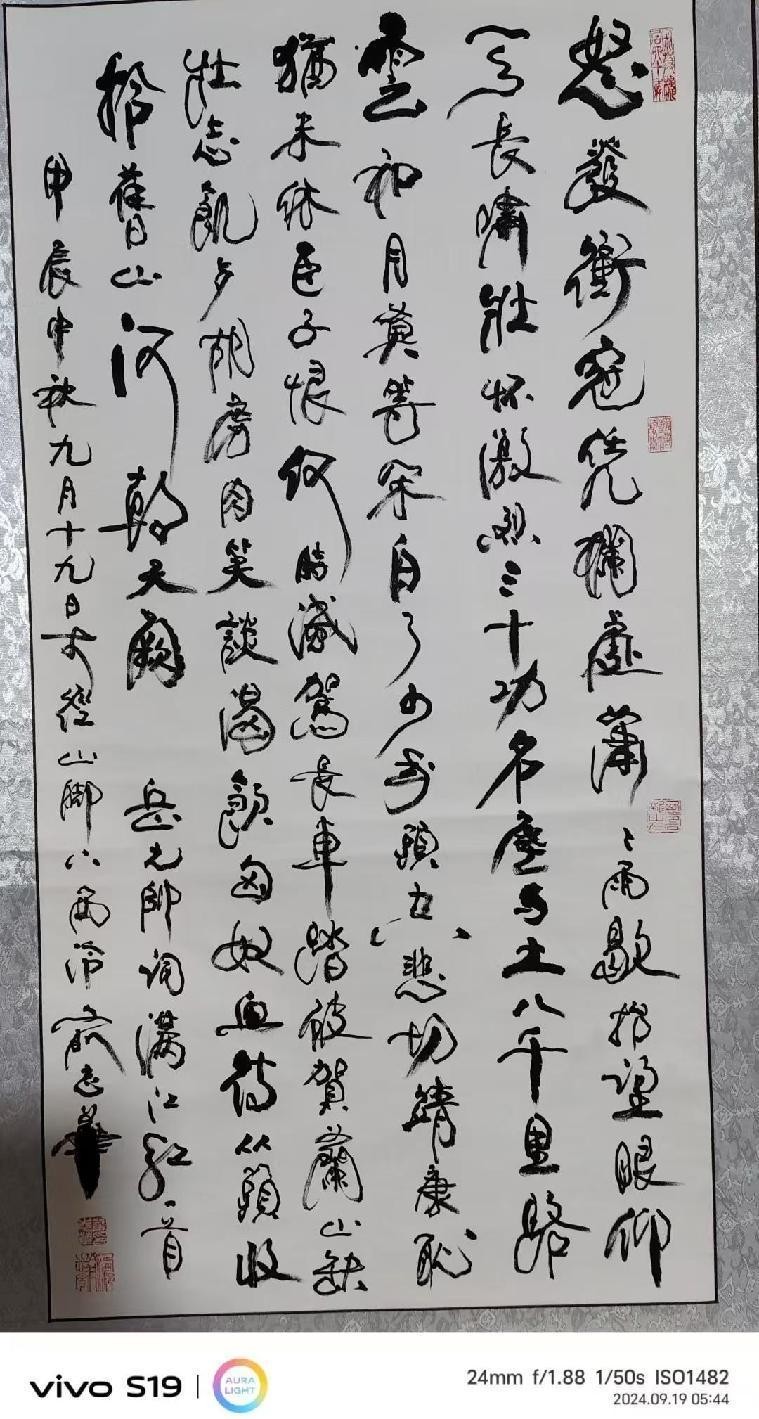 怒髮衝冠凭欄處蕭〻雨歇抬望眼仰
天長嘯壯懷激烈三十功名塵与土八千里路
雲和月莫等閑白了少年頭空悲切靖康恥
猶未休臣子恨何時滅駕長車踏破賀蘭山缺
壯志飢夕胡虜肉笑談渴飲匈奴血待從頭收
拾舊山河朝天闕 岳元帥詞滿江紅一首
甲辰中秋九月十九日於徑山腳下
vivo S19
AURA LIGHT
24mm f/1.88 1/50s ISO1482
2024.09.19 05:44